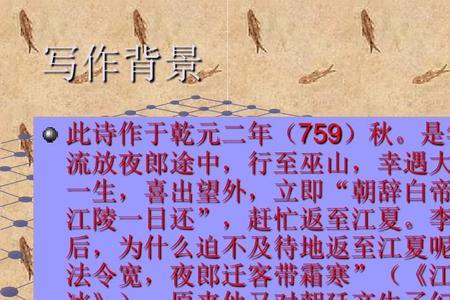 写作背景
此诗作于乾元二年（759）秋。是
流放夜郎途中，行至巫山，幸遇大
一生，喜出望外，立即“朝辞白帝
江陵一日还”，赶忙返至江夏。李
后，为什么迫不及待地返至江夏呢
法令宽，夜郎迁客带霜寒”（《江